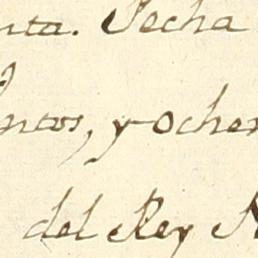 nta. Fecha
ntos, y ochen
del Rey N